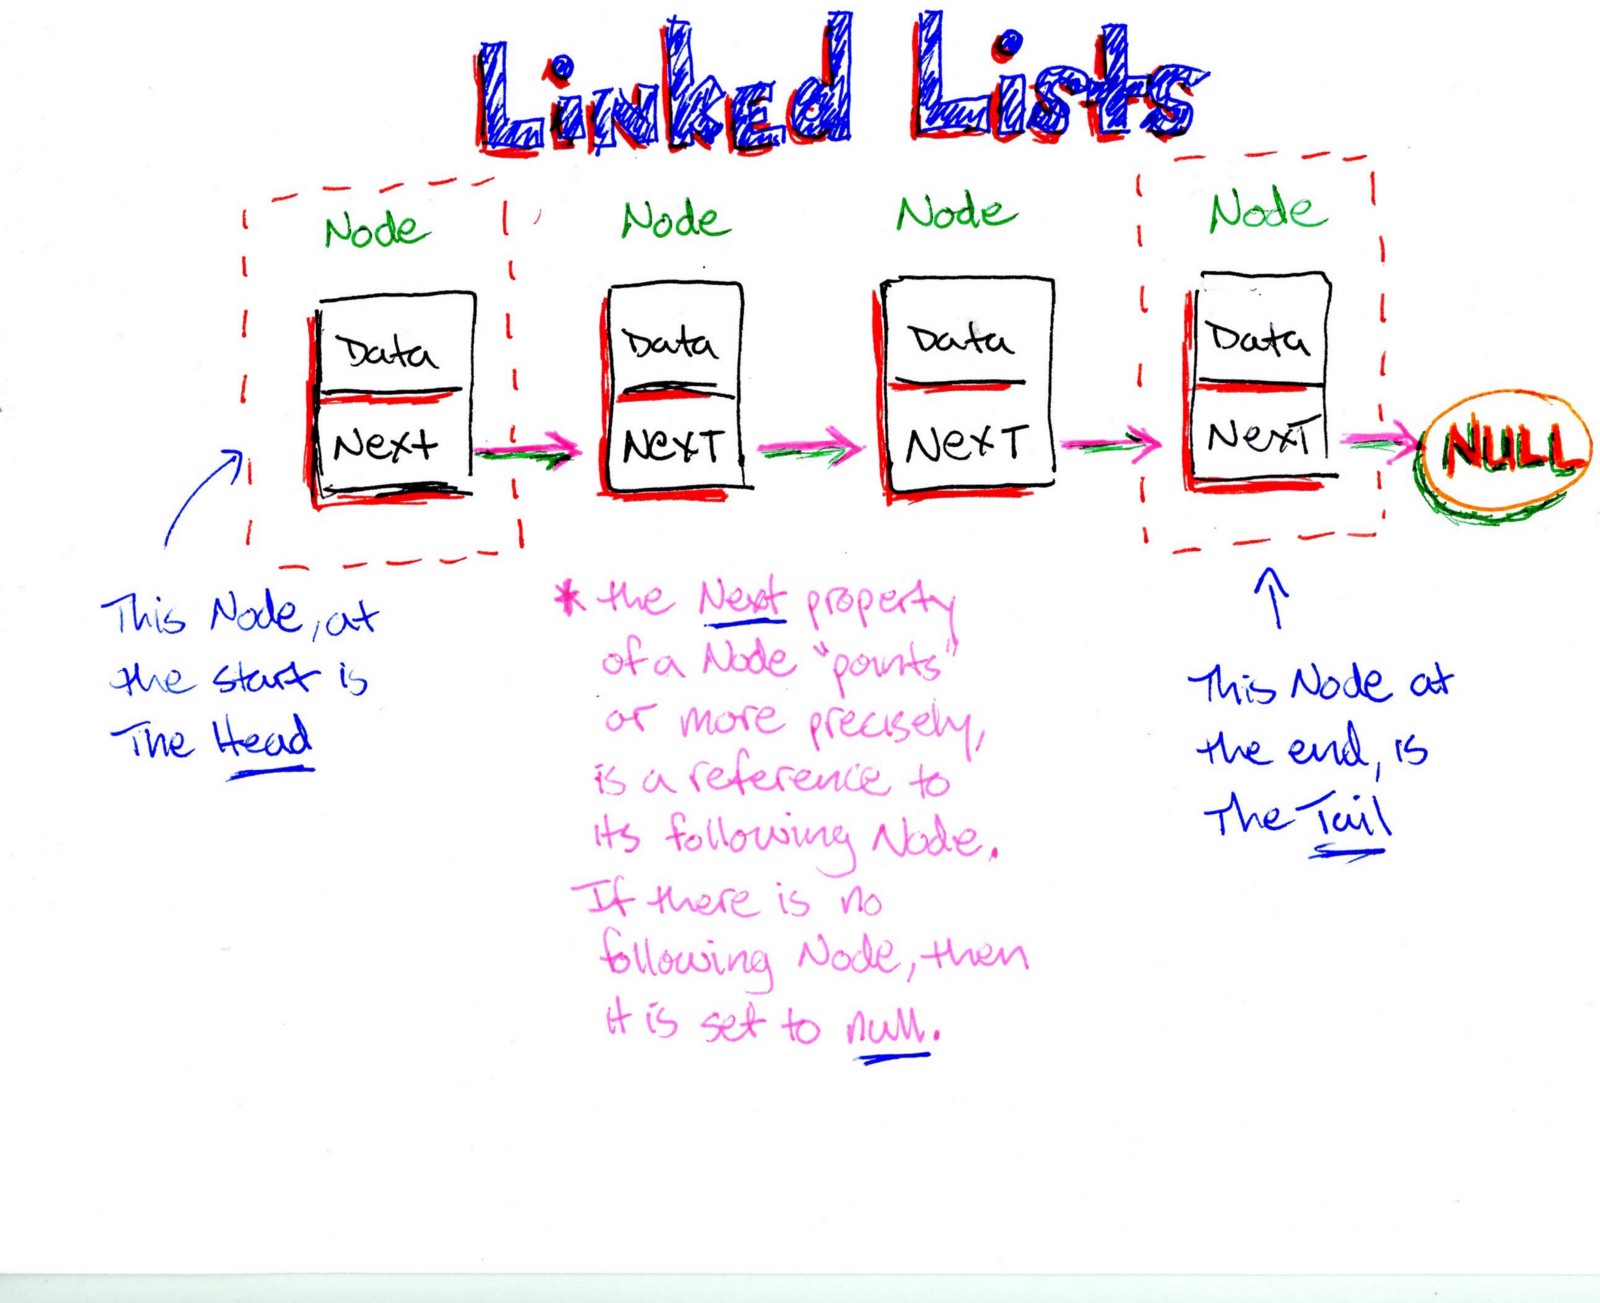 Linked Lists
Node
Node
Node
Node
Data
Data
Data
Data
Next
NexT
NexT
NexT
NULL
This Node, at
the start is
The Head
* the Next property
of a Node "points"
or more precisely,
is a reference to
its following Node.
If there is no
following Node, then
it is set to null.
This Node at
the end, is
The Tail